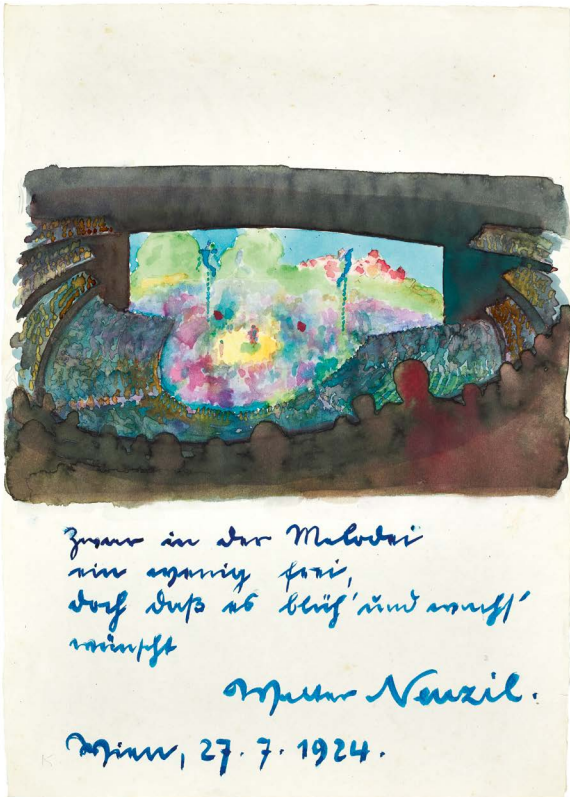 Zwar in der Melodei
ein wenig frei,
doch daß es blüh' und wachs'
wünscht
Walter Neuzil.
Wien, 27. 7. 1924.
K